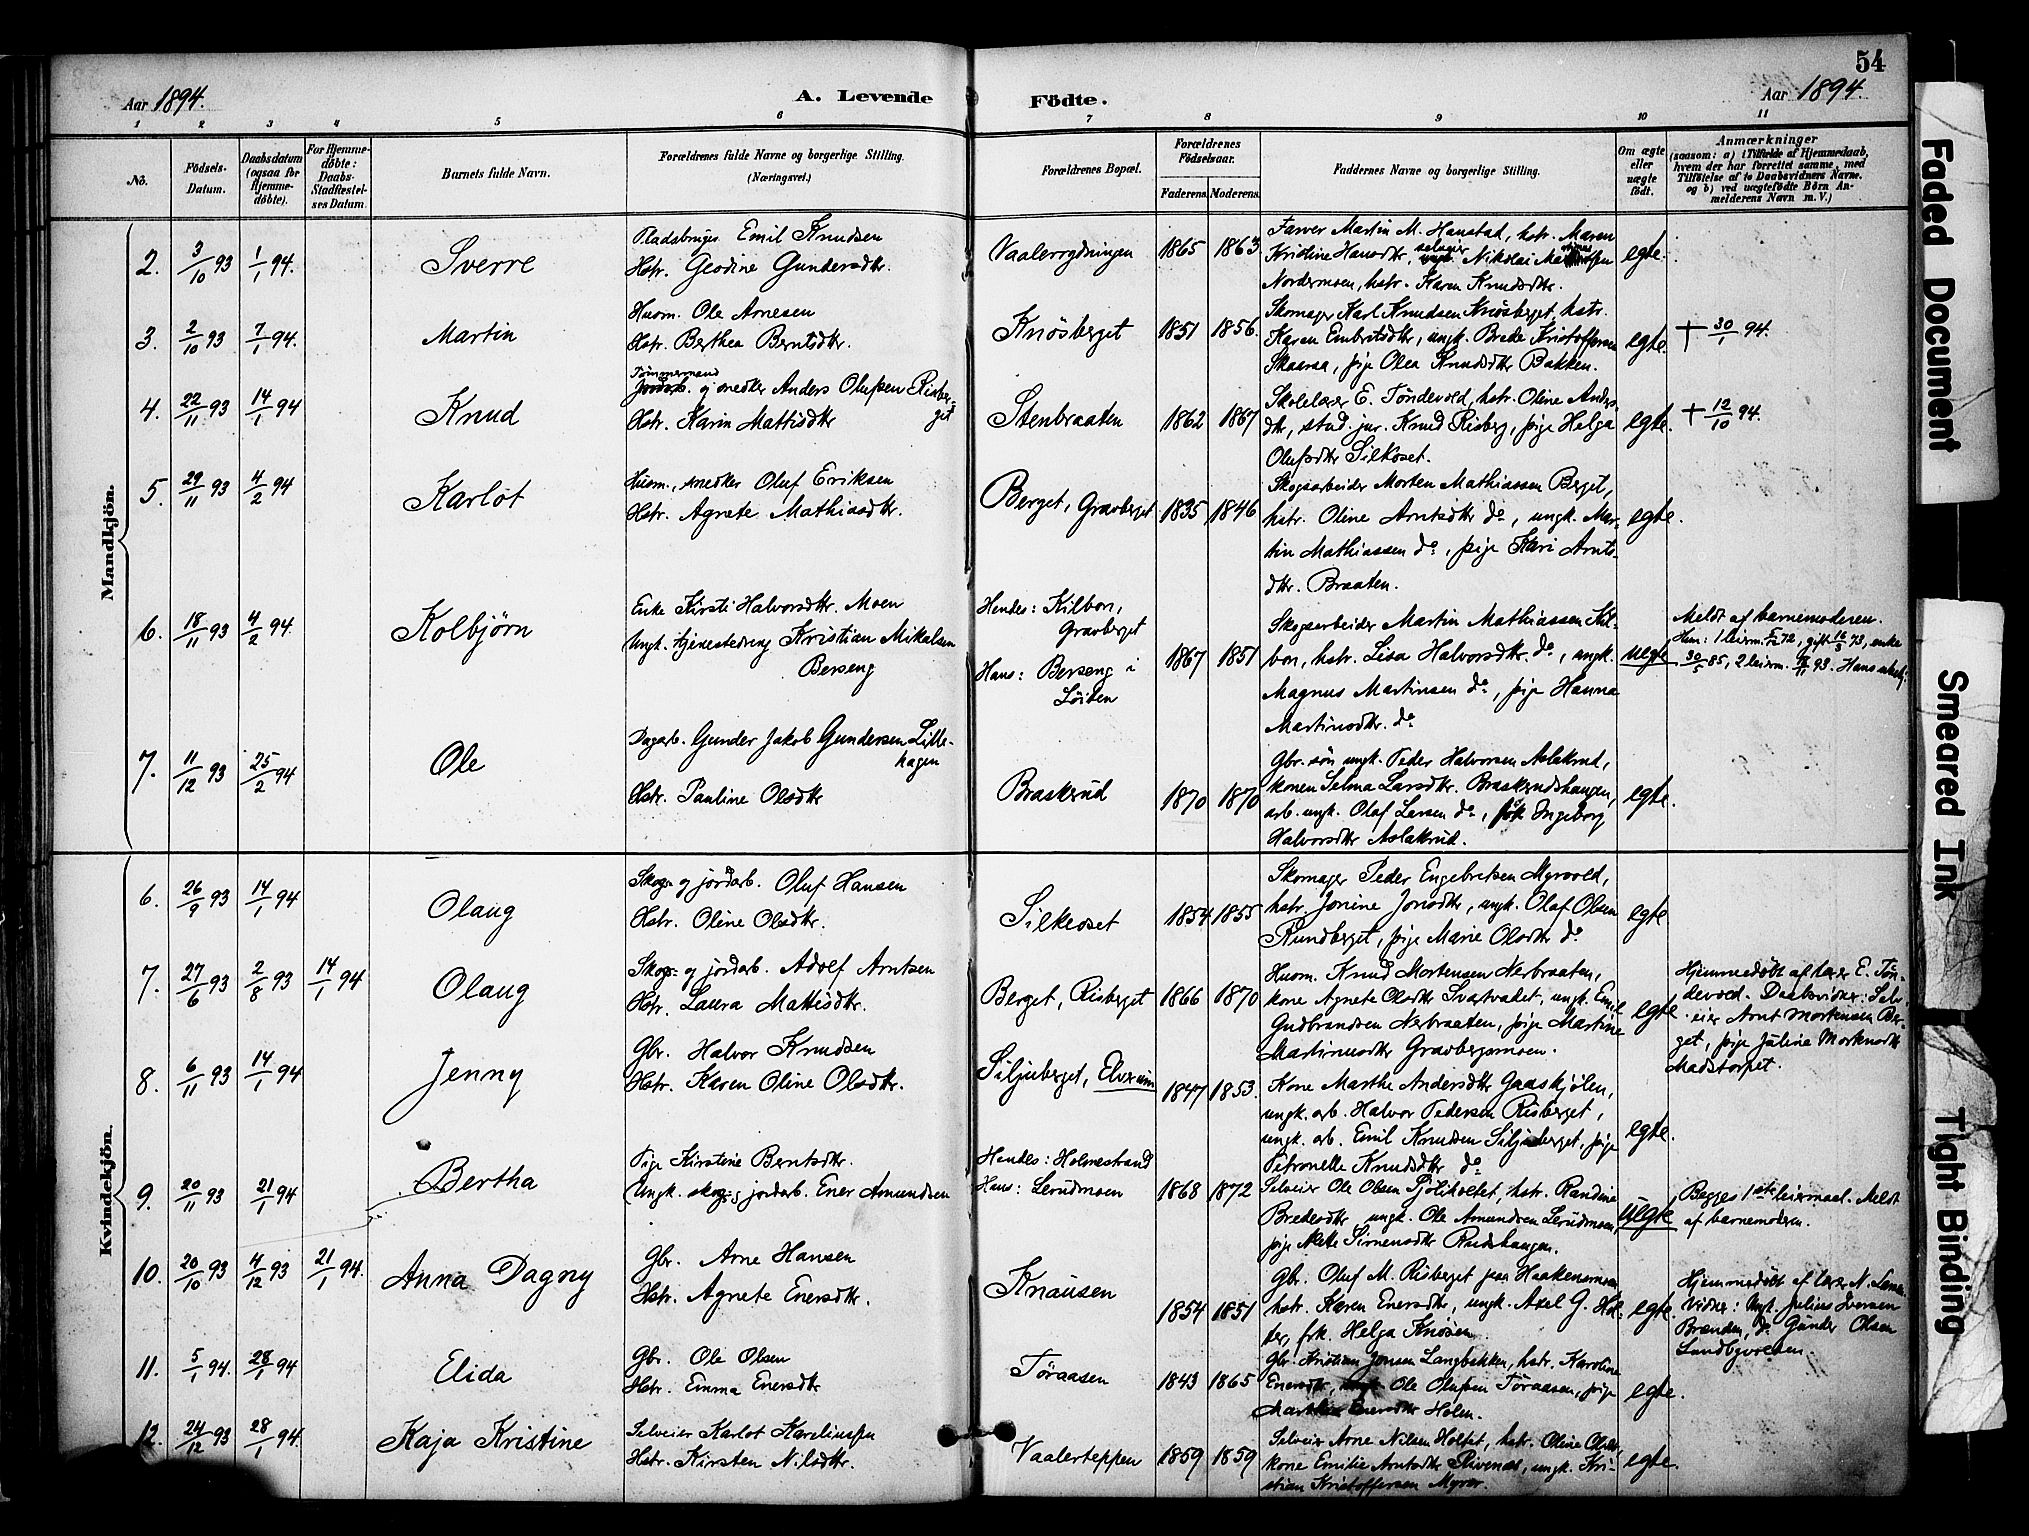 54
Aar 1894.
A. Levende Födte.
Aar 1894.
1 2 3 4 5 6 7 8 9 10 11
No.
Födsels-Datum.
Daabsdatum (ogsaa for Hjemme-döbte).
For Hjemme-döbte: Daabs-Stadfæstel-ses Datum.
Barnets fulde Navn.
Forældrenes fulde Navne og borgerlige Stilling. (Næringsvei.)
Forældrenes Bopæl.
Forældrenes Födselsaar.
Faderens. Moderens.
Faddernes Navne og borgerlige Stilling.
Om ægte eller uægte födt.
Anmærkninger
(saasom: a) i Tilfælde af Hjemmedaab, hvem der har forrettet samme, med Tilföielse af to Daabsvidners Navne. og b) ved uægtefödte Börn An-melderens Navn m. V.)
Mandkjön.
2. 3/10 93 1/1 94. Sverre
Pladsbruger Emil Knudsen
Hstr. Geodine Gundersdtr.
Vaalerrydningen 1865 1863
Farver Martin M. Haustad, hstr. Maren
Kristine Hansdtr, selveier Nikolai
Nordermoen, hstr. Karen Knudsdtr.
egte.
3. 2/10 93 7/1 94. Martin
Husm. Ole Arnesen
Hstr. Berthea Berntsdtr.
Knösberget 1851 1856.
Skomager Karl Knudsen Knösberget, hstr.
Karen Embretsdtr, ungk. Brede Kristoffersen
Skaaraa, pige Olea Knudsdtr Bakken.
egte. † 30/1 94.
4. 22/11 93 14/1 94 Knud
Tömmermand
Jordarb. og snedker Anders Olufsen Risber-
get
Hstr. Karin Mattisdtr
Stenbraaten 1862 1867
Skolelærer E. Töndevold, hstr. Oline Anders-
dtr, stud. jur. Knud Risberg, pige Helga
Olufsdtr Silkoset.
egte. † 12/10 94.
5. 29/11 93 4/2 94 Karlot
Husm., snedker Oluf Eriksen
Hstr. Agnete Mathiasdtr.
Berget, Gravberget 1835 1846
Skogsarbeider Morten Mathiassen Berget,
hstr. Oline Arntsdtr do, ungk. Mar-
tin Mathiassen do, pige Kari Arnts-
dtr. Braaten.
egte.
6. 18/11 93 4/2 94. Kolbjörn
Enke Kirsti Halvorsdtr. Moen
Ungk. tjenestedreng Kristian Mikalsen
Berseng
Hendes: Kilbon,
Gravberget
Hans: Berseng i
Löiten
1867 1851
Skogsarbeider Martin Mathiassen Kil-
bon, hstr. Lisa Halvorsdtr. do, ungk.
Magnus Martinsen do, pige Hanna
Martinsdtr. do
uegte
Meldt af barnemoderen.
Hun: 1 leierm. 72, gift 16/3 73, enke
30/5 85, 2 leierm. 93. Hans
7. 11/12 93 25/2 94 Ole
Dagarb. Gunder Jakob Gundersen Lille-
hagen
Hstr. Pauline Olsdtr
Braskerud 1870 1870
Gbr. sön ungk. Peder Halvorsen Aslakrud,
konen Selma Larsdtr. Braskerudshaugen,
arb. ungk. Olaf Larsen do, frk. Ingeborg
Halvorsdtr Aslakrud.
egte.
Kvindekjön.
6. 26/9 93 14/1 94 Olaug
Skogs- og jordarb. Oluf Hansen
Hstr. Oline Olsdtr.
Silkeoset 1854 1855
Skomager Peder Engebretsen Myrvold,
hstr. Jonine Jonsdtr, ungk. Olaf Olsen
Rundberget, pige Marie Olsdtr do
egte
7. 27/6 93 2/8 93 14/1 94 Olaug
Skogs- og jordarb. Adolf Arntsen
Hstr. Laura Mattisdtr.
Berget, Risberget 1866 1870
Husm. Knud Mortensen Nerbraaten,
kone Agnete Olsdtr Svartvadet, ungk. Emil
Gudbrandsen Nerbraaten, pige Martine
Martinusdtr Gravbergsmoen.
egte
Hjemmedöbt af lærer E. Tön-
devold. Daabsvidner: Selv-
eier Arnt Mortensen Ber-
get, pige Juline
Madstorpet.
8. 6/11 93 14/1 94 Jenny
Gbr. Halvor Knudsen
Hstr. Karen Oline Olsdtr.
Siljuberget, Elverum 1847 1853.
Kone Marthe Andersdtr Gaaskjölen,
ungk. arb. Halvor Pedersen Risberget,
ungk. arb. Emil Knudsen Siljuberget, pige
Petronelle Knudsdtr do
egte.
9. 20/11 93 21/1 94 Bertha
Pige Kirstine Berntsdtr.
Ungk. skogs- og jordarb. Ener Amundsen
Hendes: Holmestrand
Hans: Lerudmoen
1868 1872
Selveier Ole Olsen Sjöliholtet, hstr. Randine
Bredesdtr, ungk. Ole Amundsen Lerudmoen,
pige Mette Simensdtr Rudshaugen.
Uegte
Begges 1ste leiermaal. Meldt
af barnemoderen.
10. 20/10 93 4/12 93 21/1 94. Anna Dagny
Gbr. Arne Hansen
Hstr. Agnete Enersdtr.
Knausen 1854 1851
Gbr. Oluf M. Risberget paa Haakensmoen
hstr. Karen Enersdtr, ungk. Axel G. Hol-
ter, frk. Helga Knösen.
egte.
Hjemmedöbt af lærer N.
Vidner: Ungk. Julius Iversen
Brænden, do Gunder Olsen
Lundbyvolden.
11. 5/1 94. 28/1 94 Elida
Gbr. Ole Olsen
Hstr. Emma Enersdtr
Töraasen 1843 1865
Gbr. Kristian Jonsen Langbakken, hstr. Karoline
Enersdtr, ungk. Ole Olufsen Töraasen, pige
Enersdtr Holen.
egte.
12. 24/12 93 28/1 94. Kaja Kristine
Selveier Karlot Karelinussen
Hstr. Kirsten Nilsdtr.
Vaalerteppen 1859 1859
Selveier Arne Nilsen Holtet, hstr. Oline Olsdtr,
kone Emilie Arntsdtr, ungk. Kri-
stian Kristoffersen Myrer.
egte.
Faded Document
Smeared Ink
Tight Binding